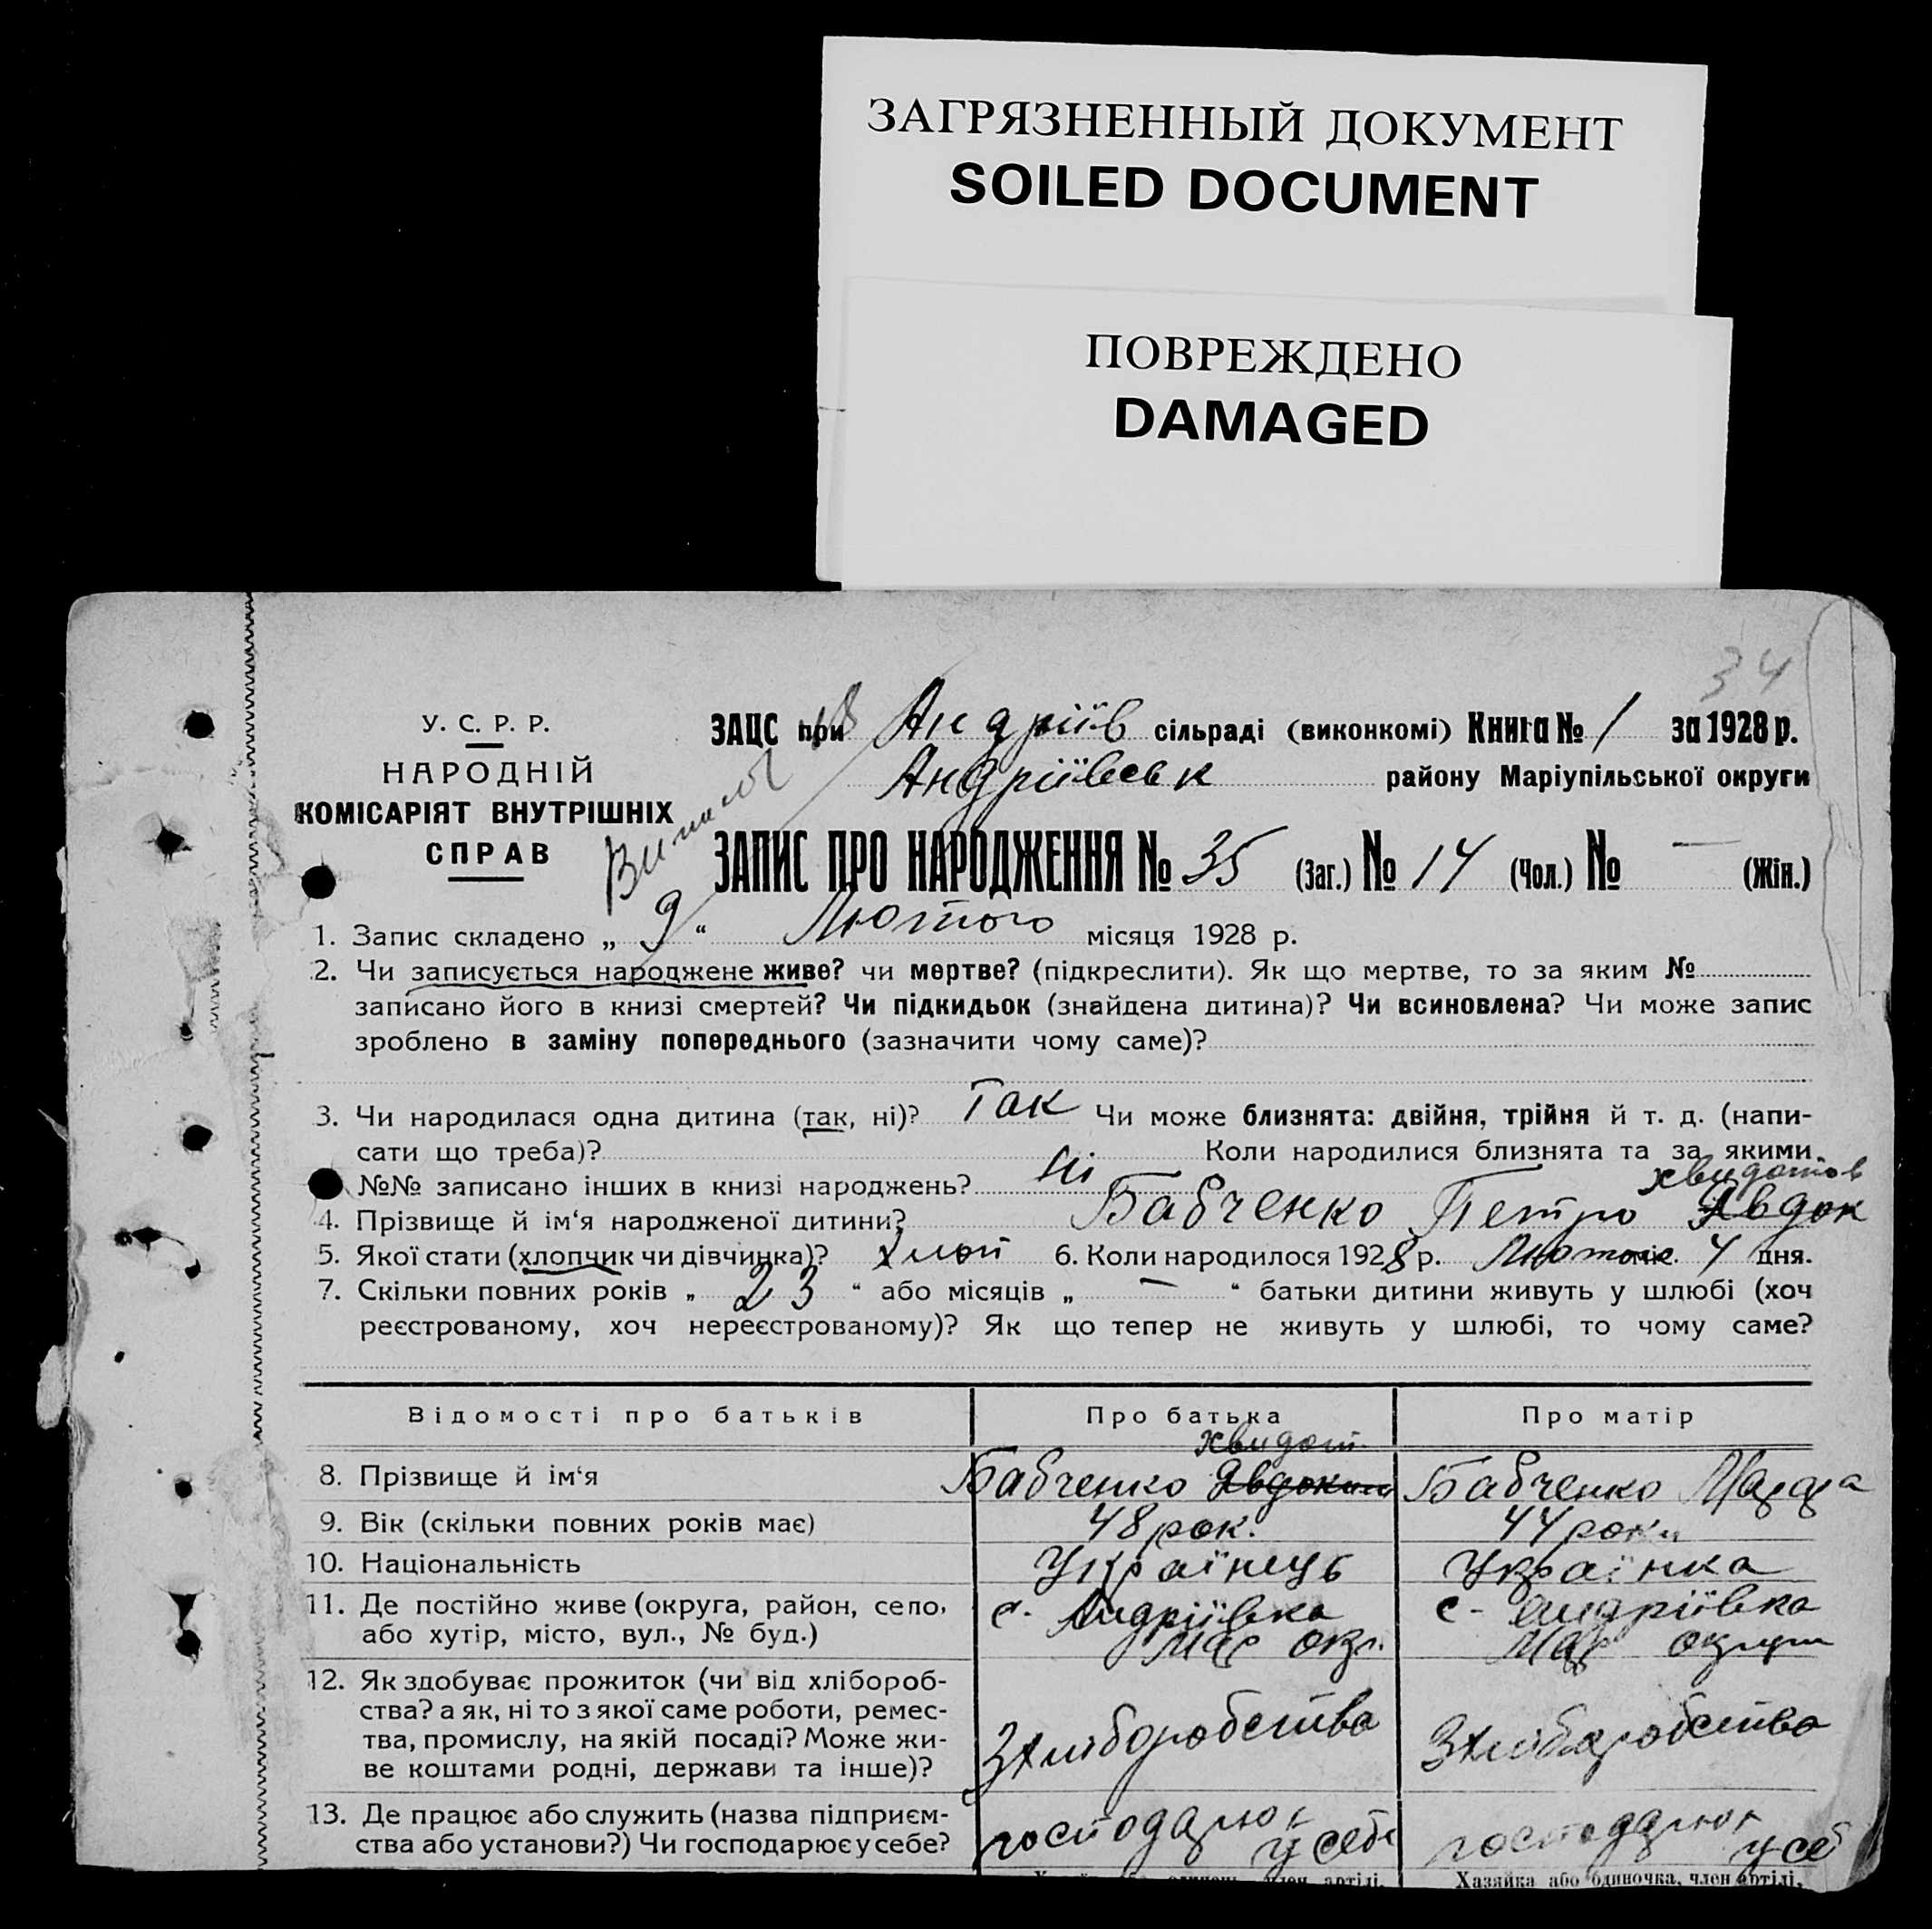 ЗАГРЯЗНЕННЫЙ ДОКУМЕНТ
SOILED DOCUMENT
ПОВРЕЖДЕНО
DAMAGED
34
У. С. Р. Р.
НАРОДНІЙ
КОМІСАРІЯТ ВНУТРІШНІХ
СПРАВ
ЗАЦС при Андріїв сільраді (виконкомі) Книга № 1 за 1928 р.
Андріївськ району Маріупільської округи
ЗАПИС ПРО НАРОДЖЕННЯ № 35 (Заг.) № 14 (Чол.) № — (Жін.)
1. Запис складено „ 9 “ Лютого місяця 1928 р.
2. Чи записується народжене живе? чи мертве? (підкреслити). Як що мертве, то за яким №
записано його в книзі смертей? Чи підкидьок (знайдена дитина)? Чи всиновлена? Чи може запис
зроблено в заміну попереднього (зазначити чому саме)?
3. Чи народилася одна дитина (так, ні)? Так Чи може близнята: двійня, трійня й т. д. (напи-
сати що треба)? Коли народилися близнята та за якими
№№ записано інших в книзі народжень? Ні
хвидотов
4. Прізвище й ім‘я народженої дитини? Бабченко Петро Явдок
5. Якої стати (хлопчик чи дівчинка)? 6. Коли народилося 1928 р. Лютого міс. 4 дня.
7. Скільки повних років „ 23 “ або місяців „ — “ батьки дитини живуть у шлюбі (хоч
реєстрованому, хоч нереєстрованому)? Як що тепер не живуть у шлюбі, то чому саме?
Відомості про батьків Про батька Про матір
хвидот.
8. Прізвище й ім‘я Бабченко Явдоким Бабченко
9. Вік (скільки повних років має) 48 рок. 44 роки
10. Національність Українець Українка
11. Де постійно живе (округа, район, село, с. Андріївка с. Андріївка
або хутір, місто, вул., № буд.) Мар окр. Мар округи
12. Як здобуває прожиток (чи від хлібороб-
ства? а як, ні то з якої саме роботи, ремес-
тва, промислу, на якій посаді? Може жи- Зхліборобства Зхліборобства
ве коштами родні, держави та інше)?
13. Де працює або служить (назва підприєм- господарює господарює
ства або установи?) Чи господарює у себе? у себе у себ
Хазяйка або одиночка, член артілі,